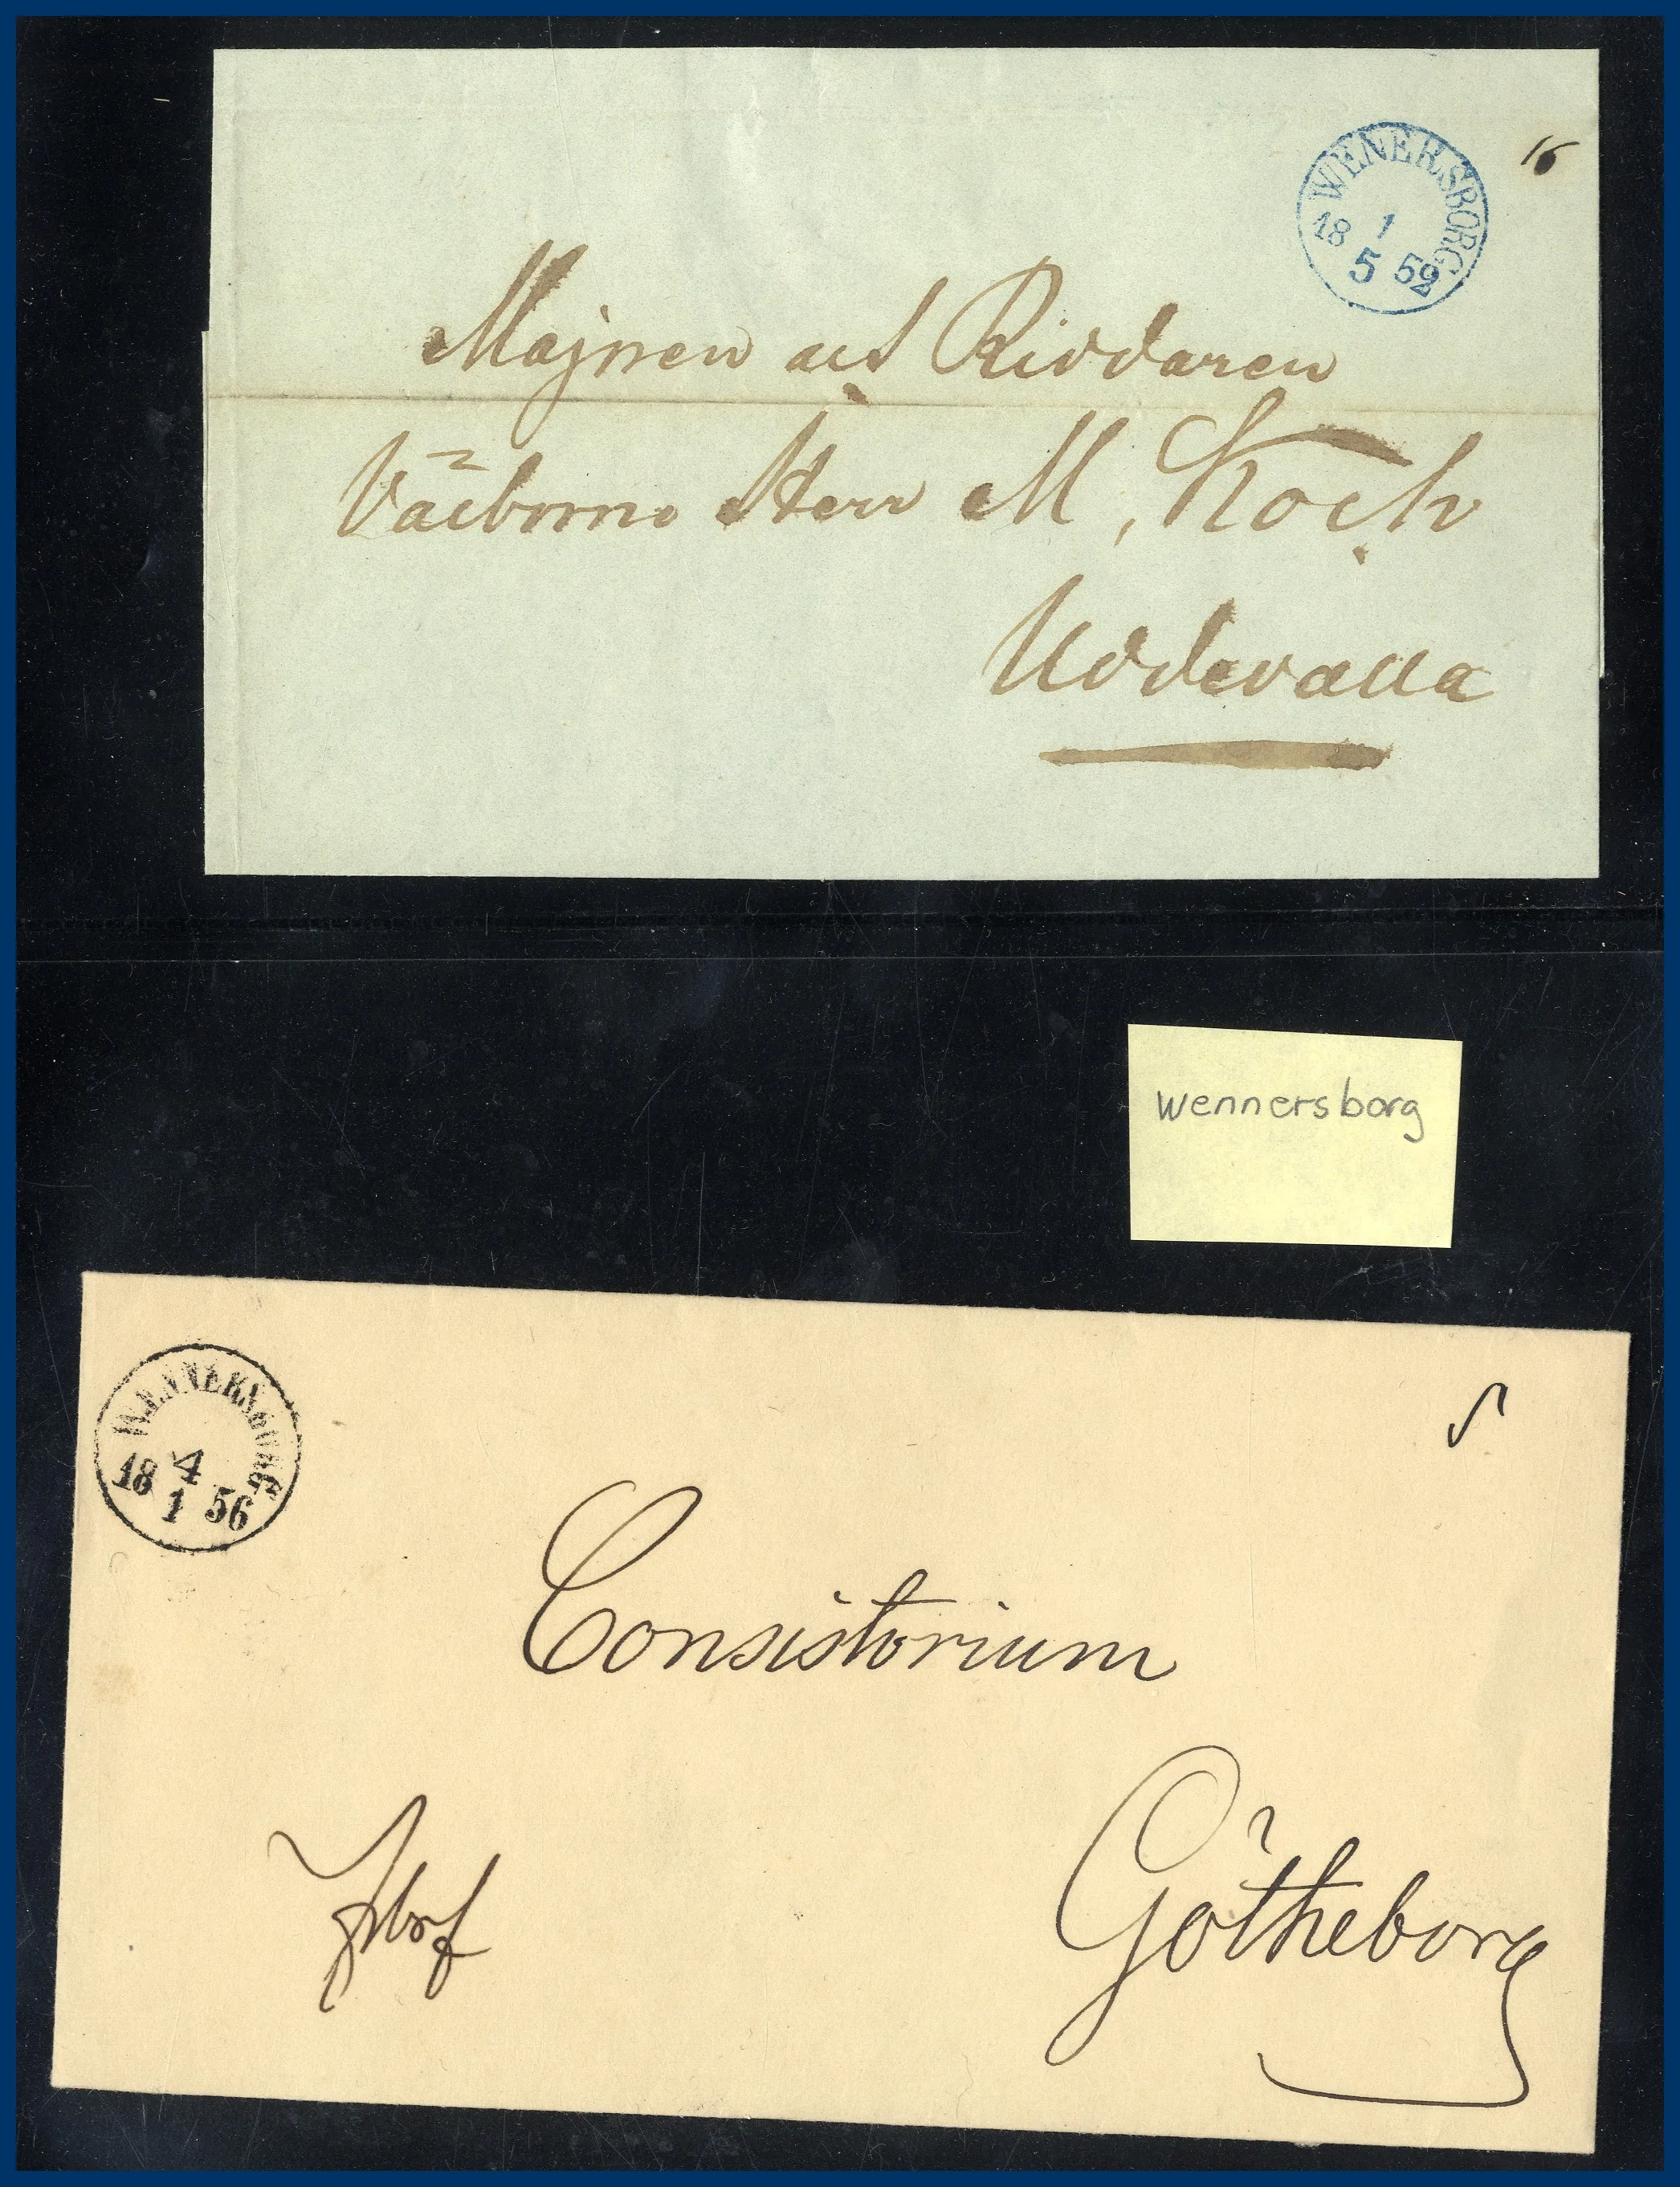 WENERSBORG
18 1
5 52
16
Majoren och Riddaren
Välborne Herr M, Koch
Uddevalla
wennersborg
WENNERSBORG
18 4
1 56
Consistorium
Götheborg